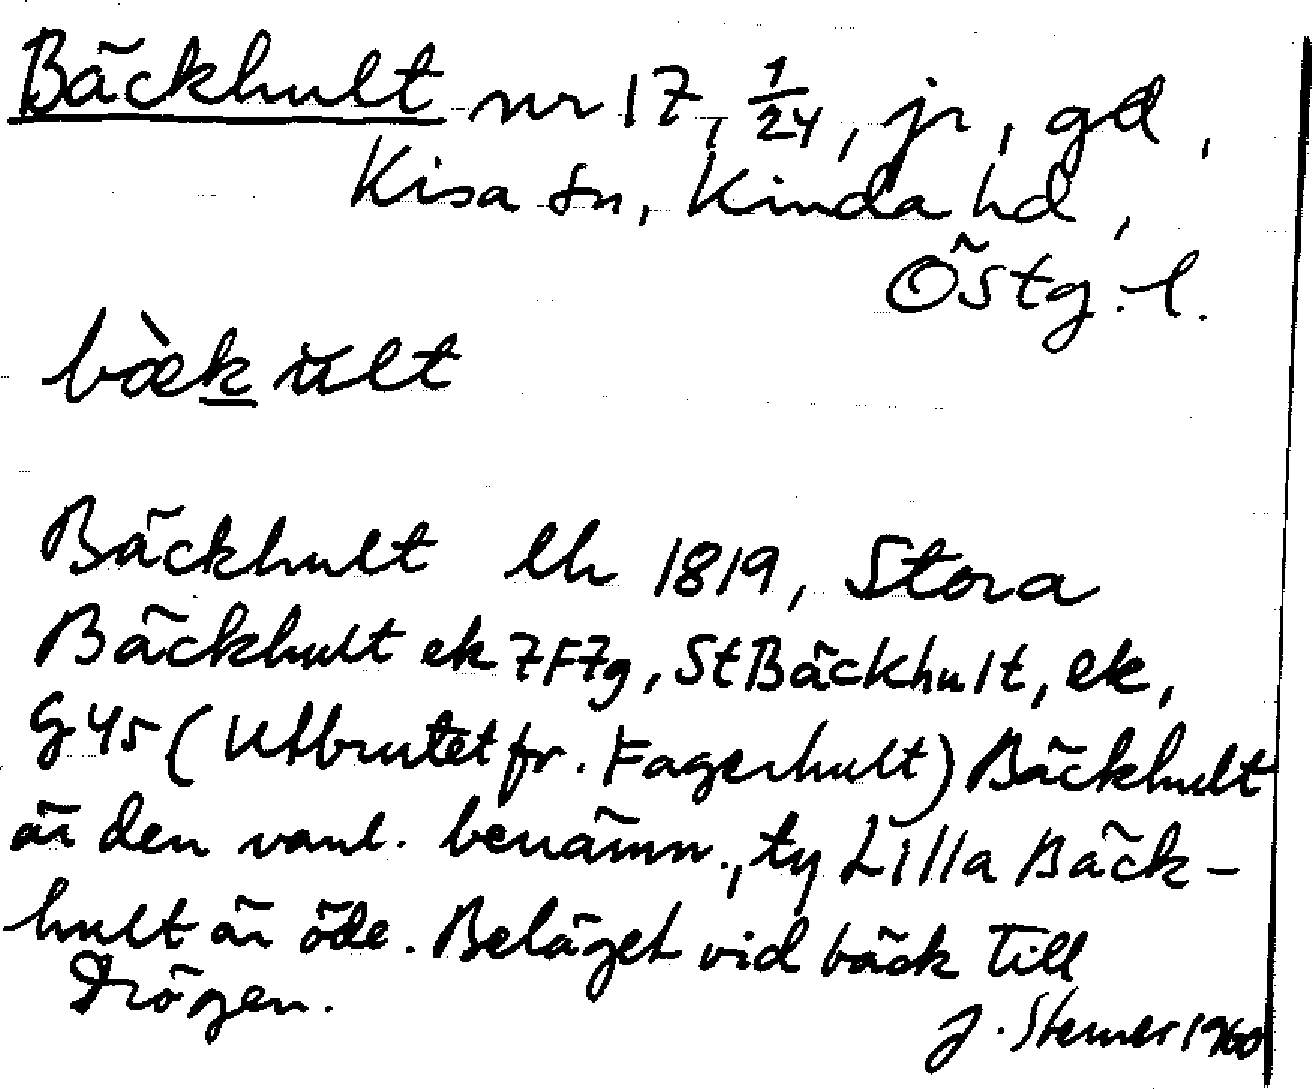 Bäckhult nr 17, 1/24, jr, gd,
Kisa sn, Kinda hd,
Östg.l.
bæ̀k ult
Bäckhult lh 1819, Stora
Bäckhult ek 7F7g, StBäckhult, ek,
G45 (Utbrutet fr. Fagerhult) Bäckhult
är den vanl. benämn., ty Lilla Bäck-
hult är öde. Beläget vid bäck till
Drögen.
J. Sterner 1960